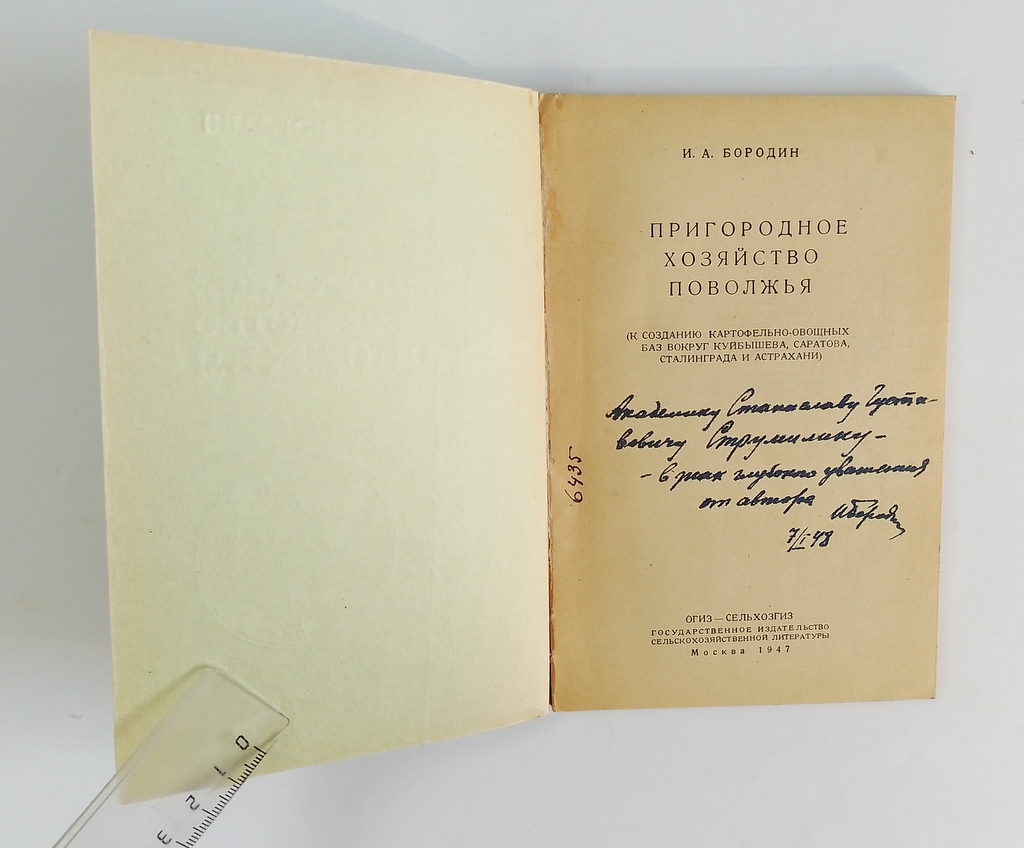 И. А. БОРОДИН
ПРИГОРОДНОЕ
ХОЗЯЙСТВО
ПОВОЛЖЬЯ
(К СОЗДАНИЮ КАРТОФЕЛЬНО-ОВОЩНЫХ
БАЗ ВОКРУГ КУЙБЫШЕВА, САРАТОВА,
СТАЛИНГРАДА И АСТРАХАНИ)
Академику Станиславу Густа-
вовичу Струмилину -
- в знак глубокого уважения
от автора
ИБородин
7/I 48
6435
ОГИЗ — СЕЛЬХОЗГИЗ
ГОСУДАРСТВЕННОЕ ИЗДАТЕЛЬСТВО
СЕЛЬСКОХОЗЯЙСТВЕННОЙ ЛИТЕРАТУРЫ
Москва 1947
0
1
2
3